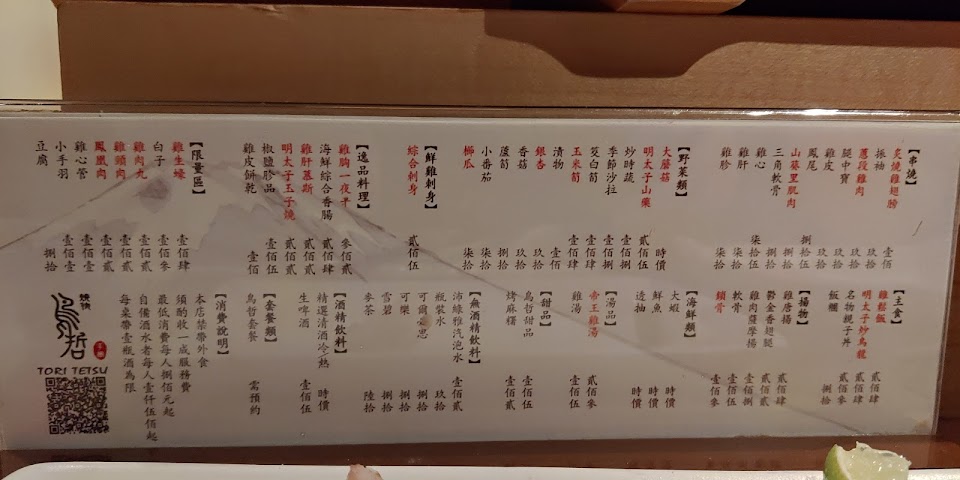 【串燒】
炙燒雞翅膀 壹佰
振袖 玖拾
蔥段雞肉 玖拾
腿中寶 玖拾
雞皮 玖拾
鳳尾 捌拾伍
山藥里肌肉 捌拾
三角軟骨 柒拾
雞心 柒拾伍
雞肝 柒拾
雞胗 柒拾
【野菜類】
大蘑菇 時價
明太子山藥 貳佰伍
炒時蔬 壹佰伍
季節沙拉 壹佰捌
茭白筍 壹佰肆
玉米筍 壹佰肆
漬物 壹佰
銀杏 玖拾
香菇 玖拾
蘆筍 捌拾
小番茄 柒拾
櫛瓜 柒拾
【鮮雞刺身】
綜合刺身 貳佰伍
【逸品料理】
雞胸一夜干 參佰貳
海鮮綜合香腸 貳佰肆
雞肝慕斯 貳佰
明太子玉子燒 貳佰
椒鹽膠品 壹佰伍
雞皮餅乾 壹佰
【限量區】
雞生蠔 壹佰肆
白子 壹佰參
雞肉丸 壹佰貳
雞頸肉 壹佰貳
鳳凰肉 壹佰壹
雞心管 壹佰壹
小手羽 壹佰壹
豆腐 捌拾
【主食】
雞鬆飯 貳佰肆
明太子炒烏龍 貳佰肆
名物親子丼 貳佰參
飯糰 捌拾
【揚物】
雞唐揚 貳佰肆
鬱金香翅腿 貳佰貳
雞肉醬摩揚 壹佰捌
軟骨 壹佰伍
鎖骨 壹佰參
【海鮮類】
大蝦 時價
鮮魚 時價
透抽 時價
【湯品】
帝王雞湯 貳佰參
雞湯 壹佰伍
【甜品】
甜品 壹佰伍
烤麻糬 壹佰貳
【無酒精飲料】
沛綠雅汽泡水 壹佰貳
瓶裝水 玖拾
可爾必思 捌拾
可樂 捌拾
雪碧 捌拾
麥茶 陸拾
【酒精飲料】
精選清酒冷熱 時價
生啤酒 壹佰伍
【套餐類】
鳥哲套餐 需預約
【消費說明】
本店禁帶外食
須酌收一成服務費
最低消費每人捌佰元起
自備酒水者每人壹仟伍佰起
每桌帶壹瓶酒為限
燒烤
鳥哲
TORI TETSU